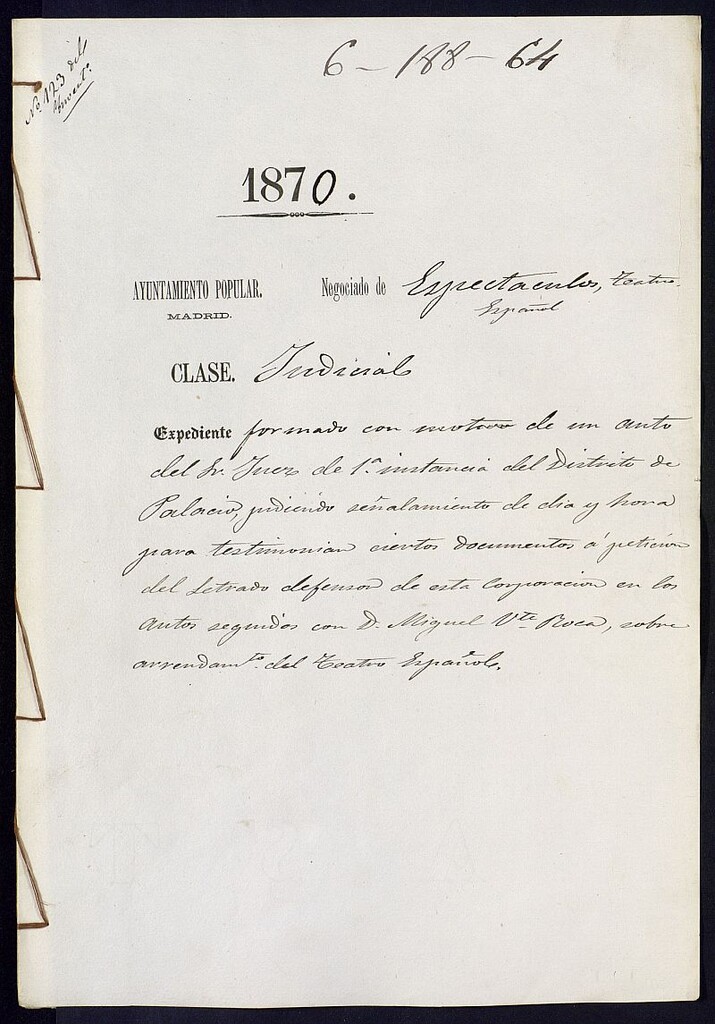 Nº 123 del
Invent.º
6 - 188 - 64
1870.
AYUNTAMIENTO POPULAR.
MADRID.
Negociado de Espectaculos, Teatro
Español
CLASE. Judicial
Expediente formado con motivo de un auto
del Sr. Juez de 1.ª instancia del Distrito de
Palacio, pidiendo señalamiento de dia y hora
para testimoniar ciertos documentos á peticion
del Letrado defensor de esta Corporacion en los
autos seguidos con D. Miguel Vte Roca, sobre
arrendamto. del Teatro Español.